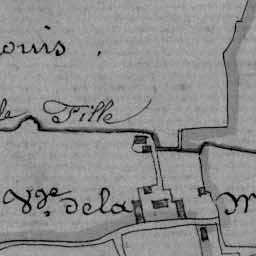 ouis.
le Fille
V.ve de la M